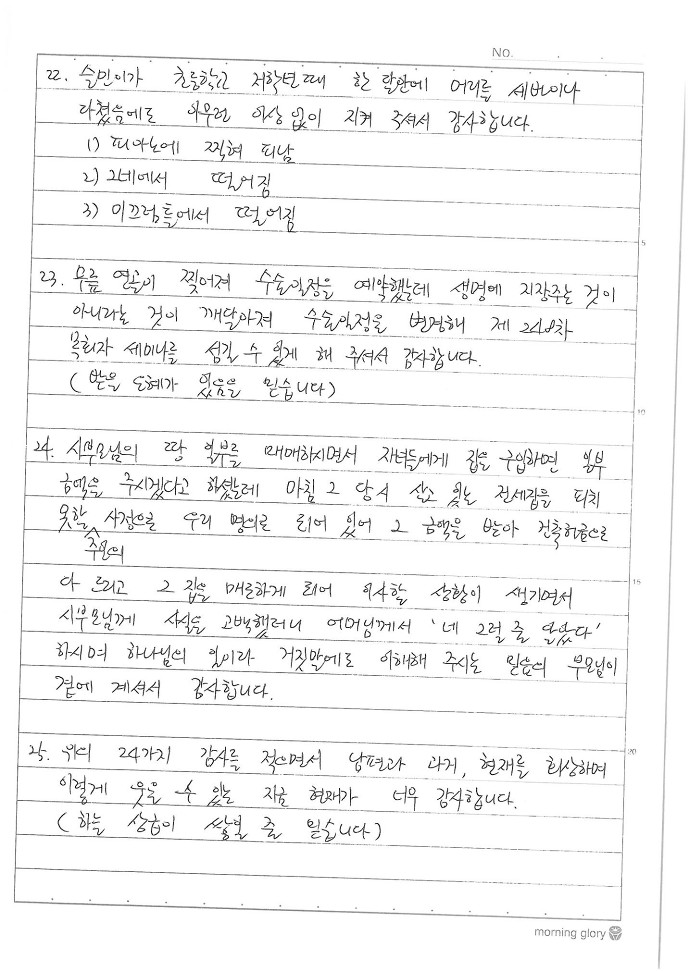 No.
22. 슬민이가 초등학교 저학년때 한 달만에 머리를 세번이나
다쳤음에도 아무런 이상 없이 지켜 주셔서 감사합니다.
1) 피아노에 찍혀 피남
2) 그네에서 떨어짐
3) 미끄럼틀에서 떨어짐
5
23. 무릎 연골이 찢어져 수술일정을 예약했는데 생명에 지장주는 것이
아니라는 것이 깨달아져 수술일정을 변경해 제 248차
목회자 세미나를 섬길 수 있게 해 주셔서 감사합니다.
(받은 은혜가 있음을 믿습니다)
10
24. 시부모님의 땅 일부를 매매하시면서 자녀들에게 집을 구입하면 일부
금액을 주시겠다고 하셨는데 마침 그 당시 살고 있는 전세집을 피치
못할 사정으로 우리 명의로 되어 있어 그 금액을 받아 건축헌금으로
주인의
15
다 드리고 그 집을 매도하게 되어 이사할 상황이 생기면서
시부모님께 사실을 고백했더니 어머님께서 '네 그럴 줄 알았다'
하시며 하나님의 일이라 거짓말에도 이해해 주시는 믿음의 부모님이
곁에 계셔서 감사합니다.
20
25. 위의 24가지 감사를 적으면서 남편과 과거, 현재를 회상하며
이렇게 웃을 수 있는 지금 현재가 너무 감사합니다.
(하늘 상급이 쌓일 줄 믿습니다)
morning glory